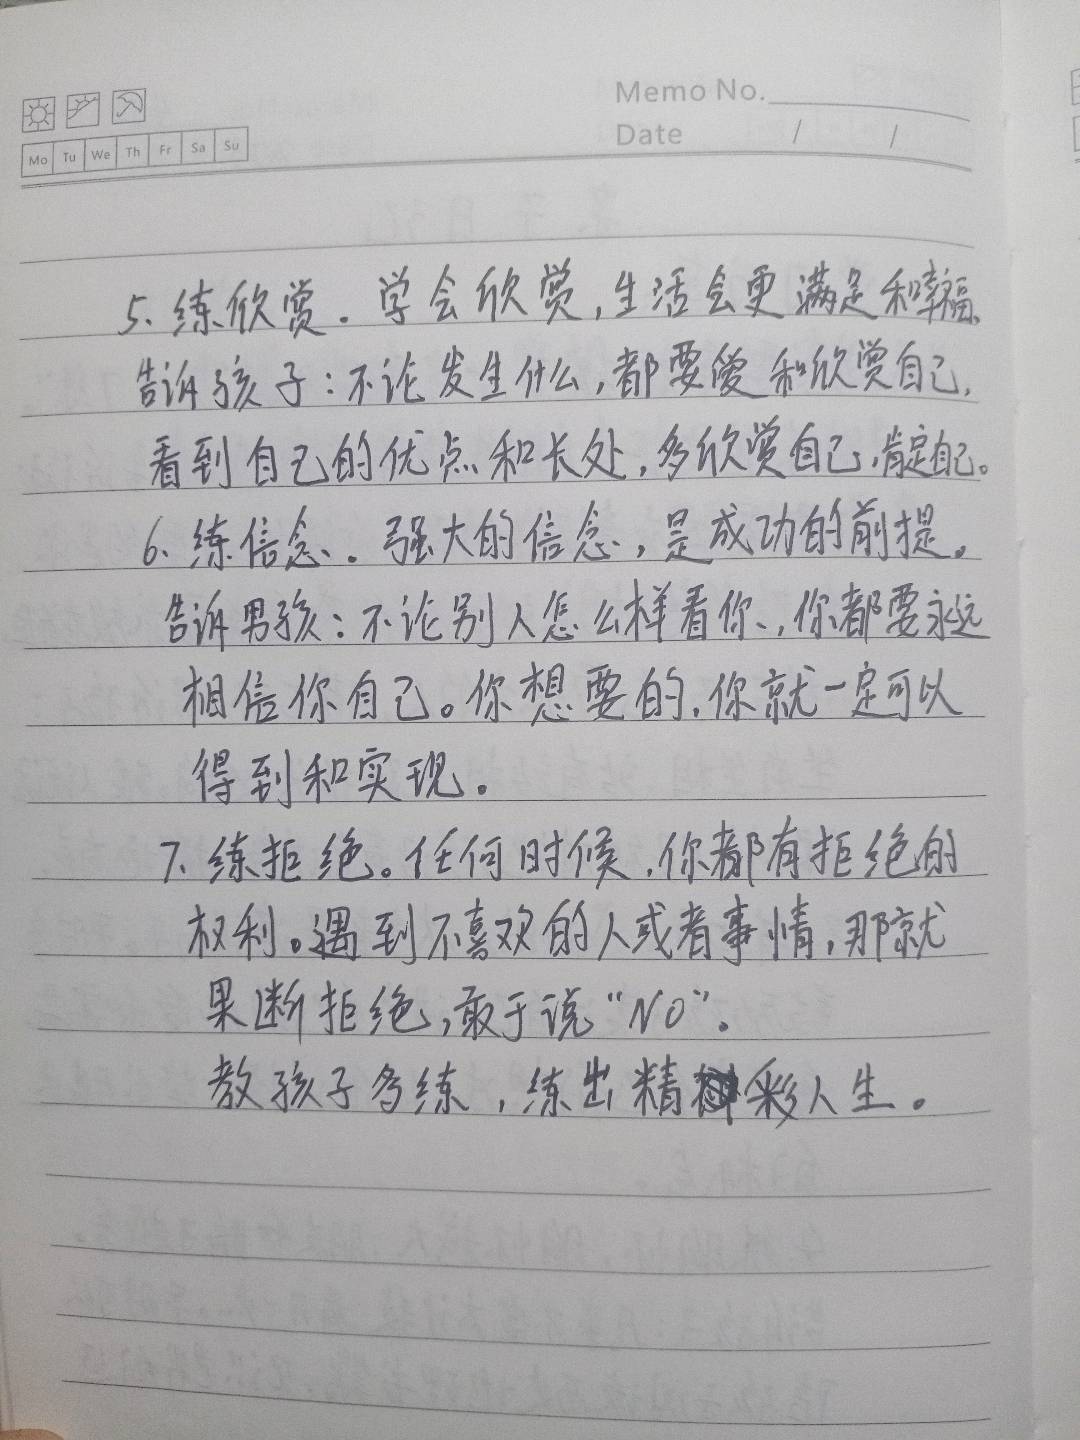 Memo No.
Date / /
Mo Tu We Th Fr Sa Su
5、练欣赏。学会欣赏,生活会更满足和幸福。
告诉孩子:不论发生什么,都要爱和欣赏自己,
看到自己的优点和长处,多欣赏自己,肯定自己。
6、练信念。强大的信念,是成功的前提。
告诉男孩:不论别人怎么样看你,你都要永远
相信你自己。你想要的,你就一定可以
得到和实现。
7、练拒绝。任何时候,你都有拒绝的
权利。遇到不喜欢的人或者事情,那就
果断拒绝,敢于说“NO”。
教孩子多练,练出精彩人生。